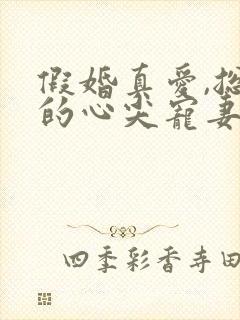 假婚真爱,总
的心尖宠妻
四季彩香寺田